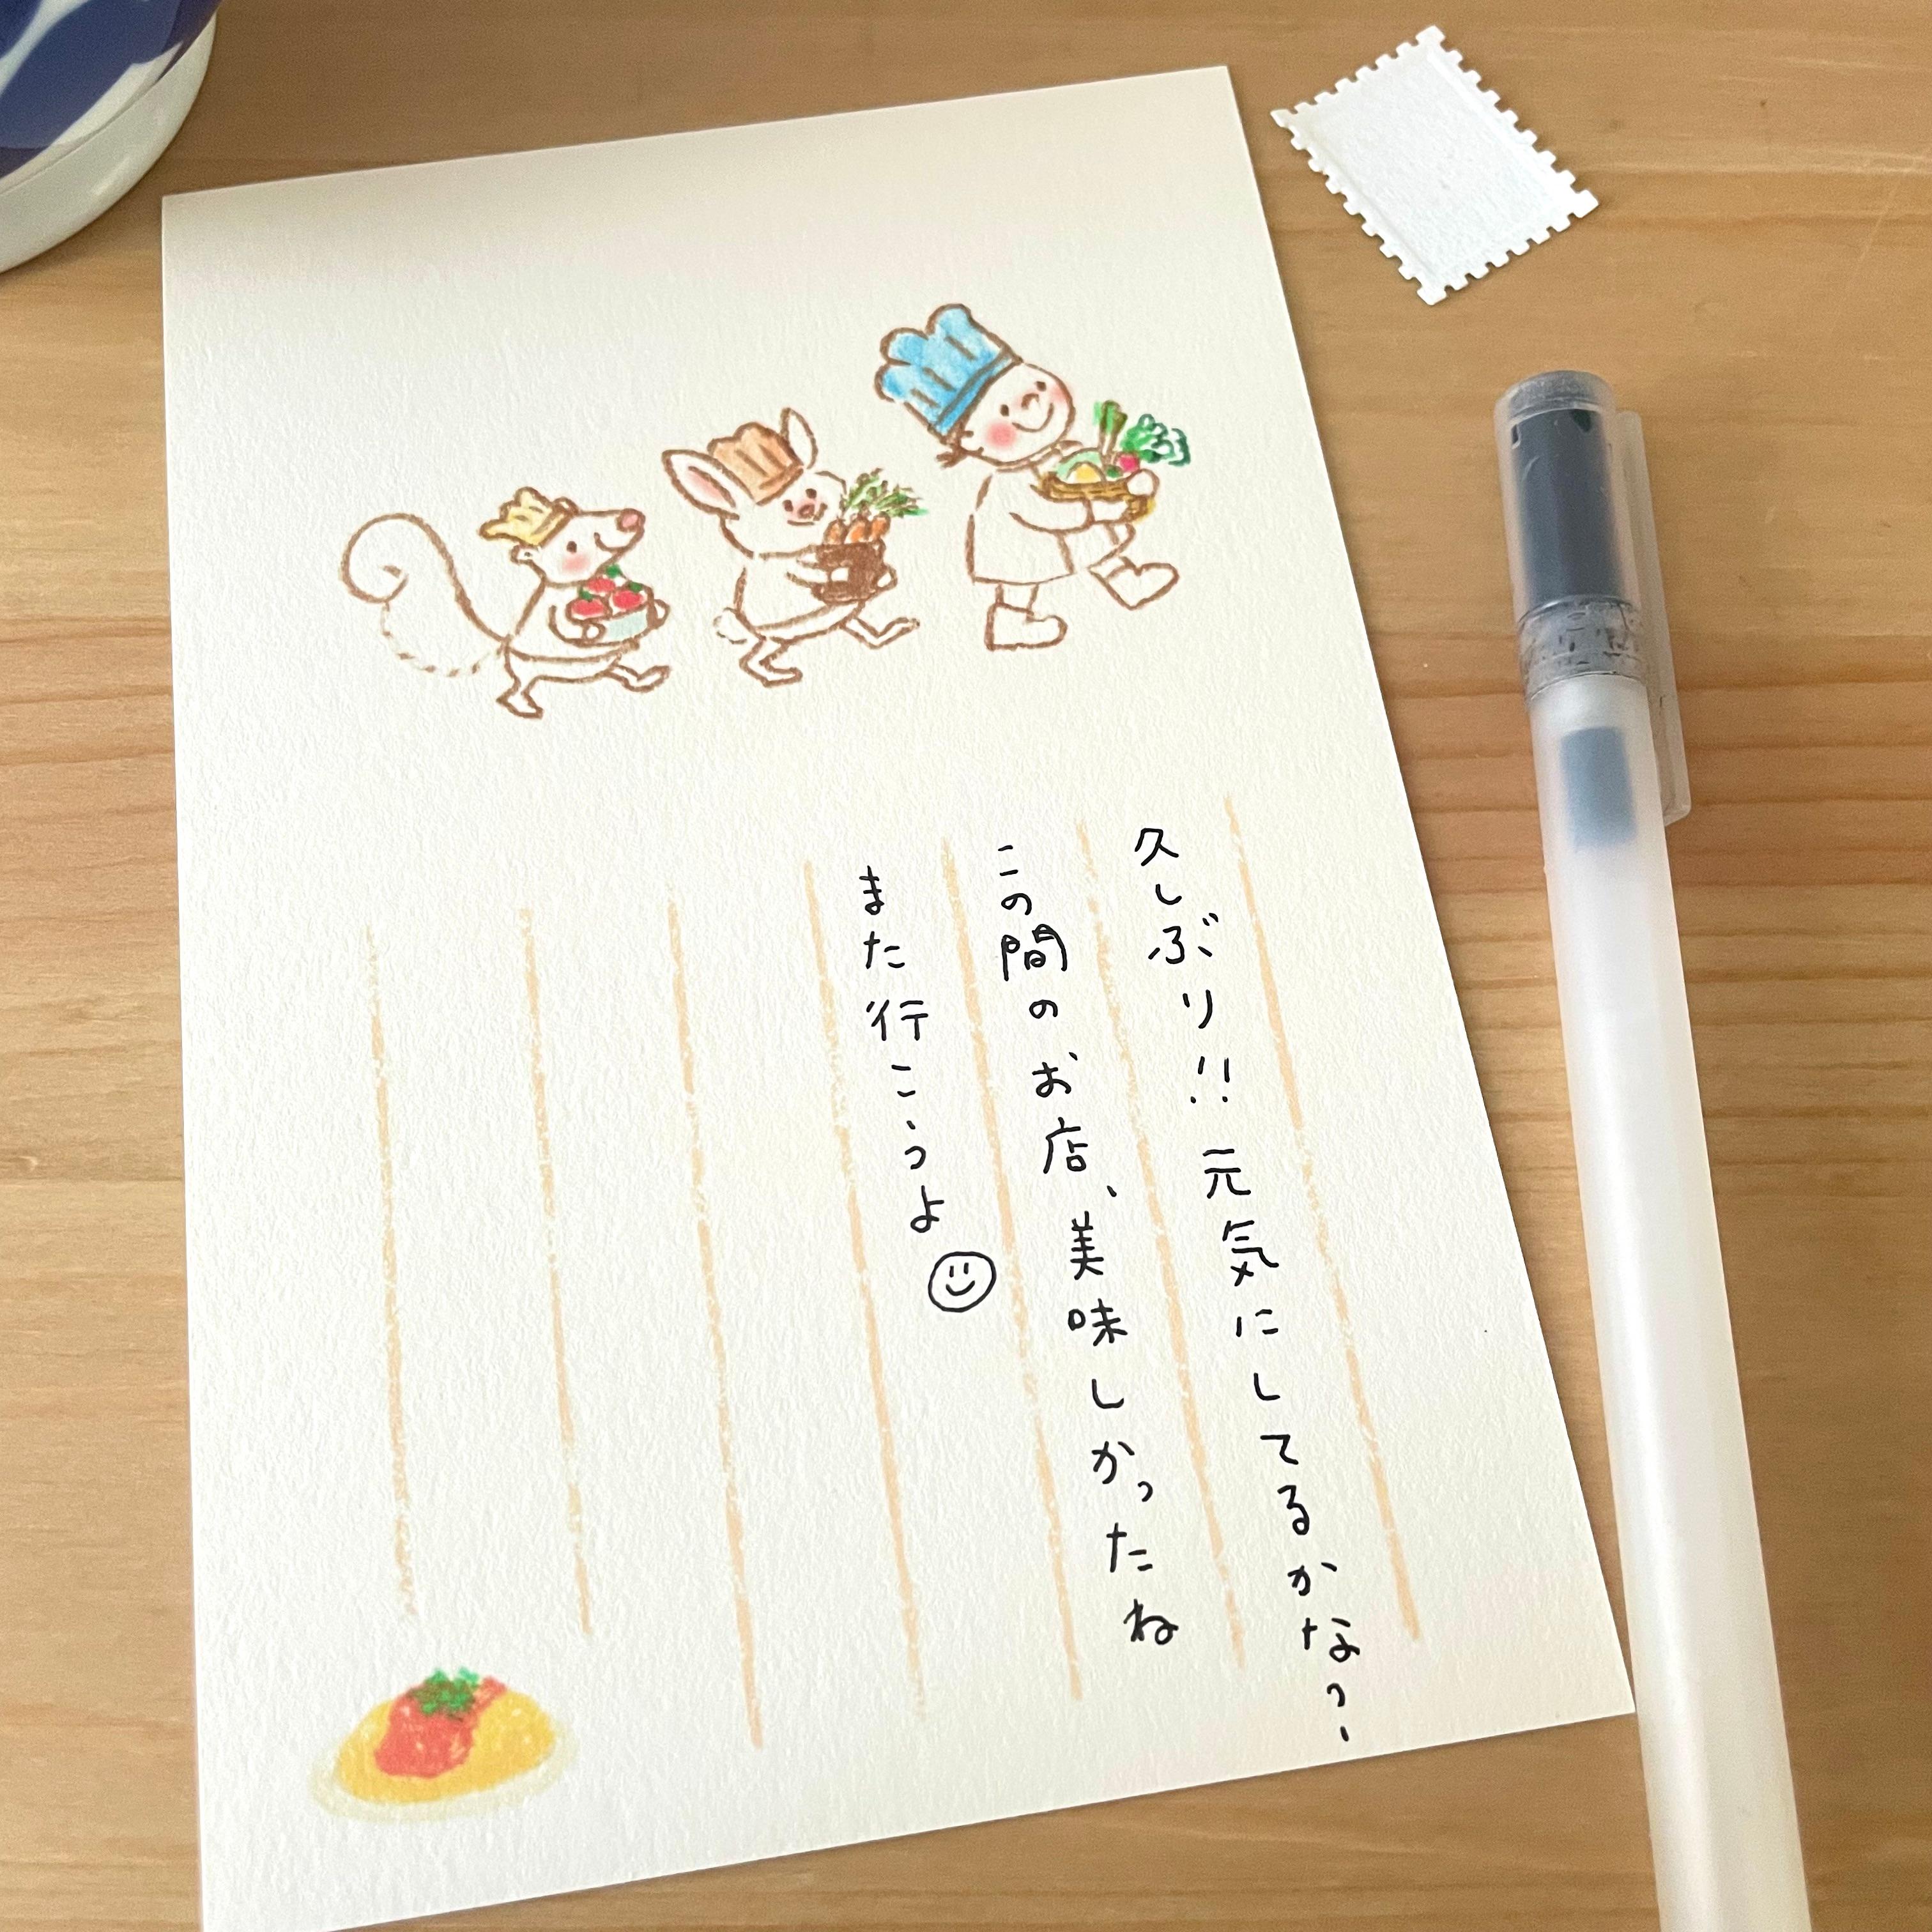 久しぶり!!元気にしてるかなっー
この間のお店、美味しかったね
また行こうよ